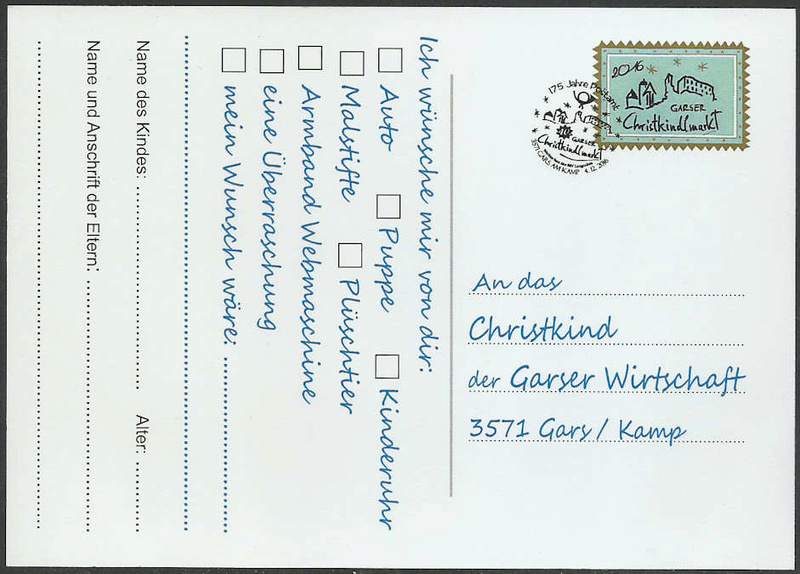 2016
GARSER
Christkindlmarkt
175 Jahre Postamt
GARSER
Christkindlmarkt
3571 GARS AM KAMP 4.12.2016
An das
Christkind
der Garser Wirtschaft
3571 Gars / Kamp
Ich wünsche mir von dir:
Auto Puppe Kinderuhr
Malstifte Plüschtier
Armband Webmaschine
eine Überraschung
mein Wunsch wäre:
Name des Kindes: Alter:
Name und Anschrift der Eltern: